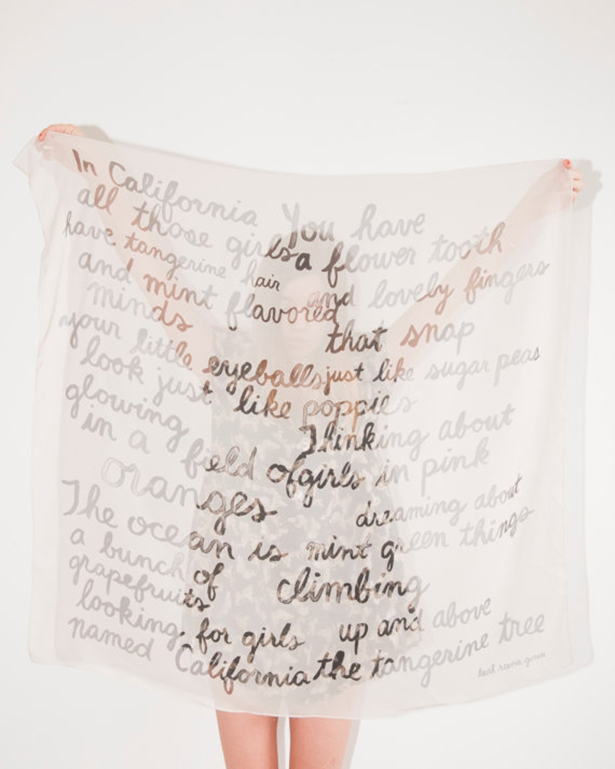 In California
all those girls
have tangerine hair
and mint flavored
minds
your little eyeballs
look just like poppies
glowing
in a field of
oranges
The ocean is
a bunch of
grapefruits
looking for girls
named California
You have
a flower tooth
and lovely fingers
that snap
just like sugar peas
Thinking about
girls in pink
dreaming about
mint green things
climbing
up and above
the tangerine tree